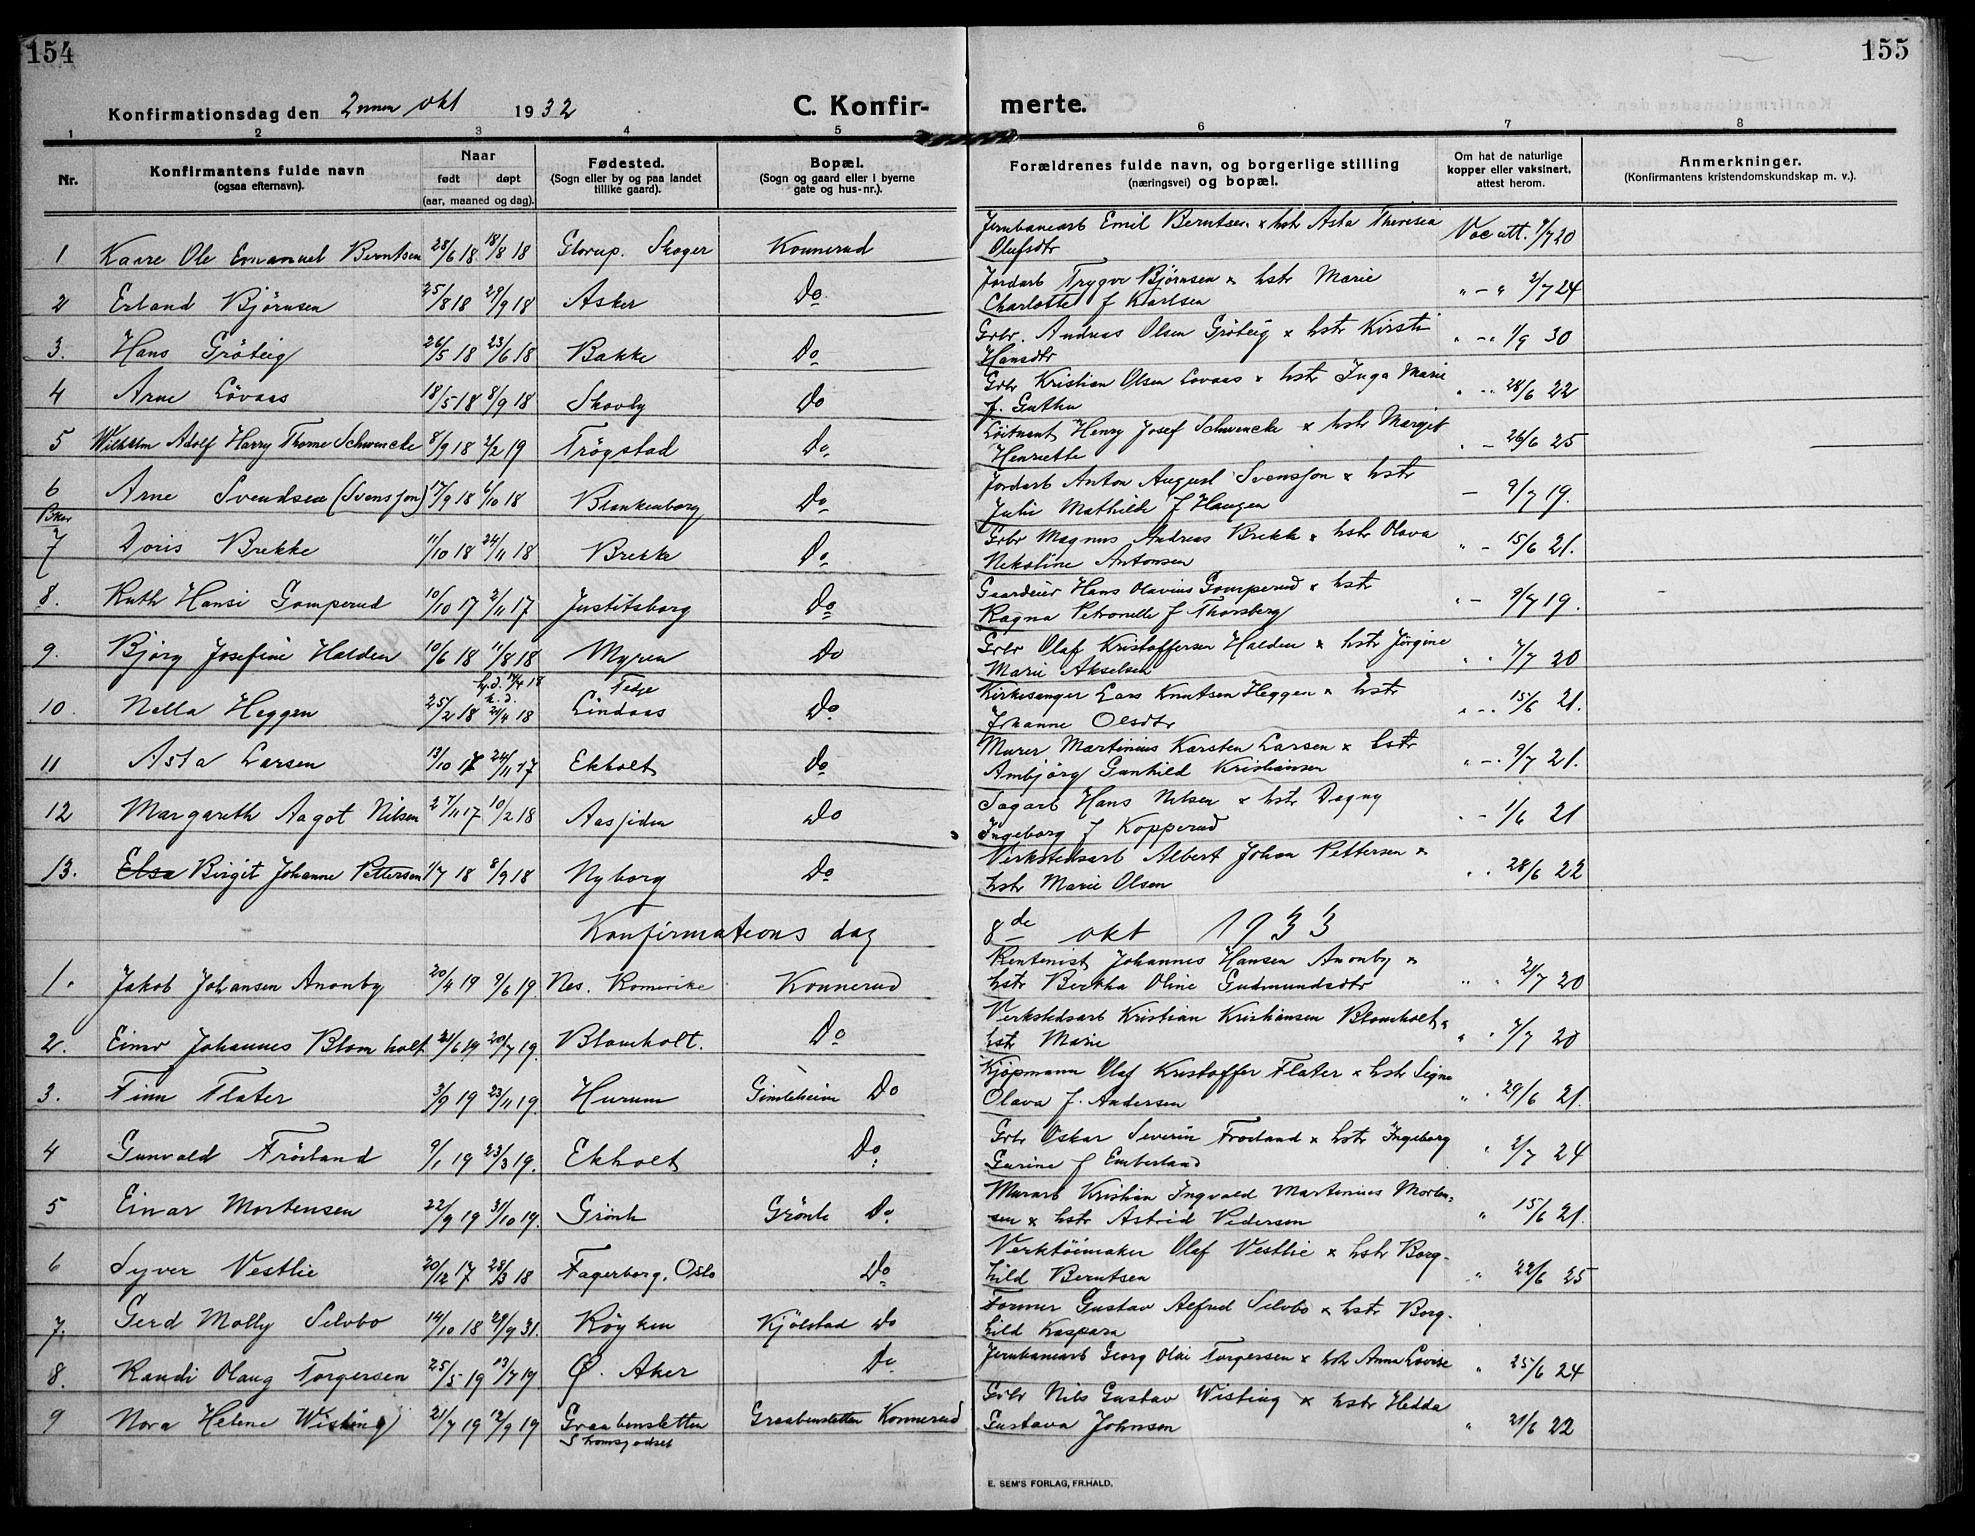 154
155
Konfirmationsdag den 2nnen okt 1932 C. Konfir- merte.
1 2 3 4 5 6 7 8
Nr.
Konfirmantens fulde navn
(ogsaa efternavn).
Naar
født døpt
(aar, maaned og dag).
Fødested.
(Sogn eller by og paa landet
tillike gaard).
Bopæl.
(Sogn og gaard eller i byerne
gate og hus-nr.).
Forældrenes fulde navn, og borgerlige stilling
(næringsvei) og bopæl.
Om hat de naturlige
kopper eller vaksinert,
attest herom.
Anmerkninger.
(Konfirmantens kristendomskundskap m. v.).
1 Kaare Ole Emanuel Berntsen 28/6 18 18/8 18 Glorup. Skoger Konnerud Jernbanearb Emil Berntsen x hstr Asta Theresia
Olufsdtr Vac att. 7/7 20
2 Erland Bjørnsen 25/8 18 29/9 18 Asker Do Jordarb Trygve Bjørnsen x hstr Marie
Charlotte f Karlsen " - " 2/7 24
3. Hans Gröteig 26/5 18 23/6 18 Bakke Do Grbr. Andreas Olsen Gröteig x hstr Kirsti
Hansdtr " - " 1/9 30
4 Arne Lövaas 18/5 18 8/9 18 Skovly Do Grbr Kristian Olsen Lovaas x hstr Inga Marie
f. Guthu " " 28/6 22
5 Wilhelm Adolf Harry Thorne Schwencke 8/9 18 2/2 19 Trögstad Do Löitnant Henry Josef Schwencke x hstr Margit
Henriette " - 26/6 25
6 Arne Svendsen (Svensson) 17/9 18 6/10 18 Blankenborg Do Jordarb Anton August Svensson x hstr
Julie Mathilde f Haugen - 9/7 19.
Piker
7 Doris Brekke 11/10 18 24/11 18 Brekke Do Grbr Magnus Andreas Brekke x hstr Olava
Nekoline Antonsen " - 15/6 21.
8. Ruth Hansi Gomperud 10/10 17 2/11 17 Justitsborg Do Gaardeier Hans Olavius Gomperud x hstr
Ragna Petronelle f Thorsberg " - 9/7 19.
9. Bjørg Josefine Halden 10/6 18 11/8 18 Myren Do Grbr Olaf Kristoffersen Halden x hstr Jørgine
Marie Akselsen " " 7/7 20
hj.d. 14/4 18 Fedje
10. Nella Heggen 25/2 18 k.d. 21/4 18 Lindaas Do Kirkesanger Lars Knutsen Heggen x hstr
Johanne Olsdtr " - " 15/6 21.
11 Asta Larsen 13/10 17 24/11 17 Ekholt Do Murer Martinius Karsten Larsen x hstr
Ambjörg Gunhild Kristiansen " - " 9/7 21.
12 Margareth Aagot Nilsen 27/11 17 10/2 18 Aassiden Do Sagarb Hans Nilsen x hstr Dagny
Ingeborg f Kopperud " - 1/6 21
13. Elsa Birgit Johanne Pettersen 1/7 18 8/9 18 Nyborg Do Verkstedsarb Albert Johan Pettersen x
hstr Marie Olsen " " 28/6 22
Konfirmations dag 8de okt 1933
1. Jakob Johansen Anonby 20/4 19 9/6 19. Nes. Romerike Konnerud Rentenist Johannes Hansen Anonby x
hstr Bertha Oline Gudmundsdtr " " 2/7 20
2. Einar Johannes Blomholt 21/6 19 20/7 19. Blomholt. Do Verkstedsarb Kristian Kristiansen Blomholt x
hstr Marie " " 7/7 20
3. Finn Flater 3/9 19 23/11 19. Hurum Gimleheim Do Kjöpmann Olaf Kristoffer Flater x hstr Signe
Olava f. Andersen " " 29/6 21.
4 Gunvald Fröiland 9/1 19 23/3 19. Ekholt Do Grbr Oskar Severin Froiland x hstr Ingeborg
Gurine f Emberland " 2/7 24
5 Einar Mortensen 22/9 19 31/10 19. Grönli Grönli Do Murarb Kristian Ingvald Martinius Morten-
sen x hstr Astrid Pedersen " 15/6 21.
6 Syver Vestlie 20/12 17 28/3 18 Fagerborg, Oslo Do Verktöimaker Olaf Vestlie x hstr Borg-
hild Berntsen " 22/6 25
7. Gerd Molly Selvbo 14/10 18 29/9 31. Röyken Kjölstad Do Former Gustav Alfred Selvbo x hstr Borg-
hild Kaspara
8. Randi Olaug Torgersen 25/5 19 13/7 19 Ø. Aker Do Jernbanearb Georg Olai Torgersen x hstr Anna Lovise " 25/6 24
9 Nora Helene Wisting 21/7 19 12/9 19 Graabensletten Graabensletten Konnerud Grbr Nils Gustav Wisting x hstr Hedda
Strömsgodset Gustava Johnsen " 21/6 22
E. SEM'S FORLAG, FR.HALD.